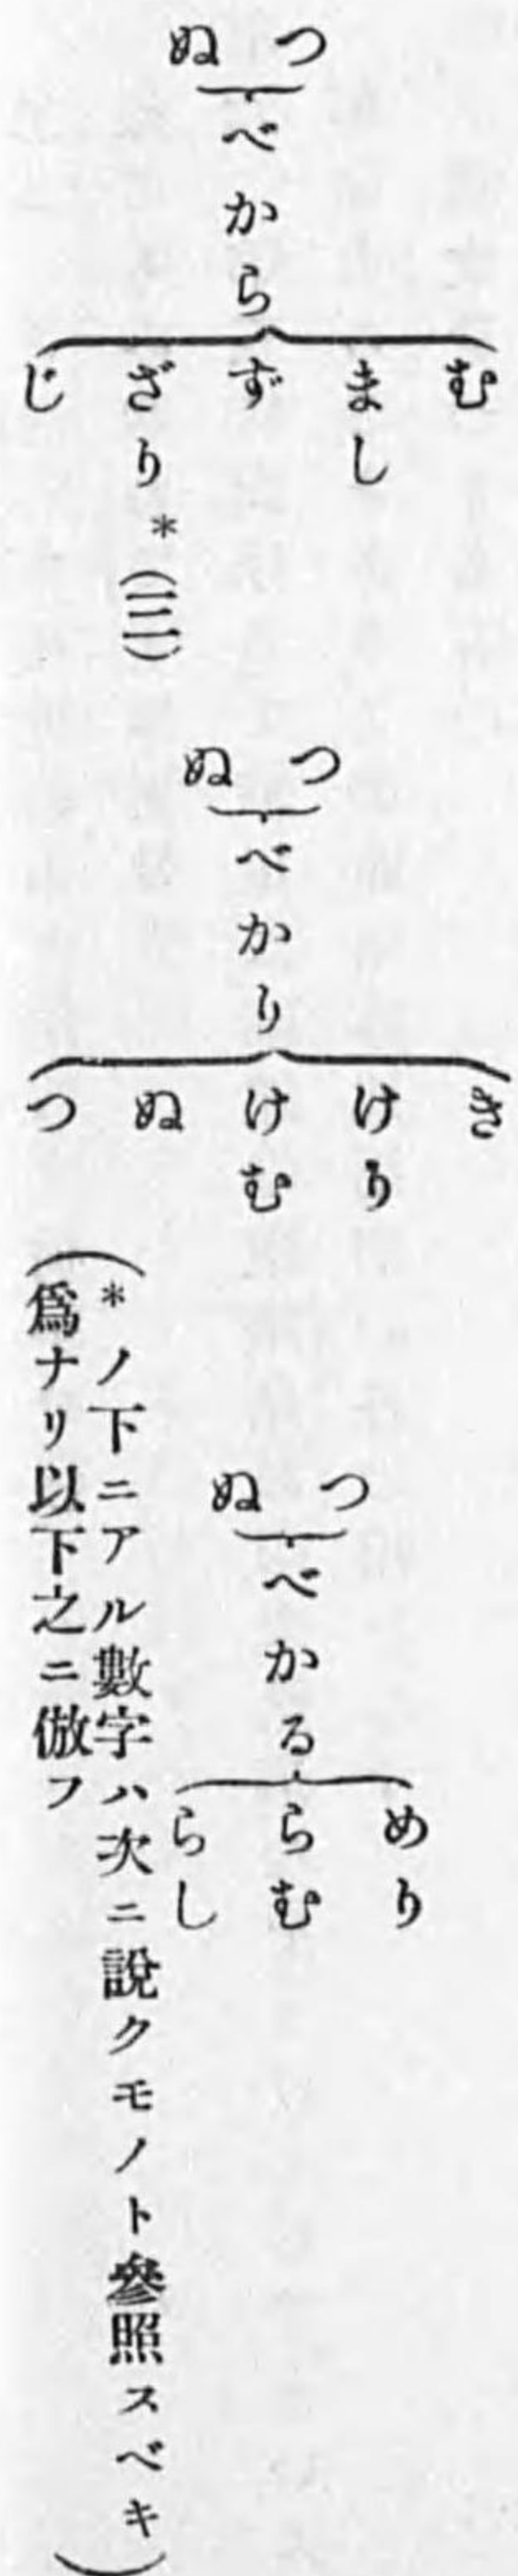 つ
ぬ
べから
む
まし
ず
ざり *(三)
じ
つ
ぬ
べかり
き
けり
けむ
ぬ
つ
つ
ぬ
べかる
めり
らむ
らし
(*ノ下ニアル數字ハ次ニ說クモノト參照スベキ
爲ナリ以下之ニ倣フ)